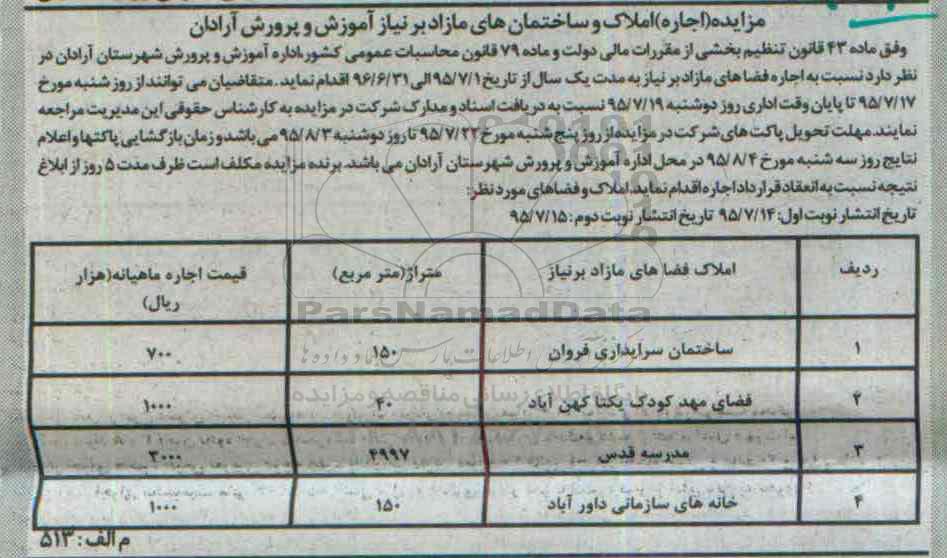 مزایده(اجاره)املاک و ساختمان های مازاد بر نیاز آموزش و پرورش آرادان
وفق ماده ۴۳ قانون تنظیم بخشی از مقررات مالی دولت و ماده ۷۹ قانون محاسبات عمومی کشور،اداره آموزش و پرورش شهرستان آرادان در
نظر دارد نسبت به اجاره فضاهای مازاد بر نیاز به مدت یک سال از تاریخ ۹۵/۷/۱ الی ۹۶/۶/۳۱ اقدام نماید. متقاضیان می توانند از روز شنبه مورخ
۹۵/۷/۱۷ تا پایان وقت اداری روز دوشنبه ۹۵/۷/۱۹ نسبت به دریافت اسناد و مدارک شرکت در مزایده به کارشناس حقوقی این مدیریت مراجعه
نمایند. مهلت تحویل پاکت های شرکت در مزایده از روز پنج شنبه مورخ ۹۵/۷/۲۲ تا روز دوشنبه ۹۵/۸/۳ می باشد و زمان بازگشایی پاکتها و اعلام
نتایج روز سه شنبه مورخ ۹۵/۸/۴ در محل اداره آموزش و پرورش شهرستان آرادان می باشد. برنده مزایده مکلف است ظرف مدت ۵ روز از ابلاغ
نتیجه نسبت به انعقاد قرارداد اجاره اقدام نماید. املاک و فضاهای مورد نظر:
تاریخ انتشار نوبت اول: ۹۵/۷/۱۴ تاریخ انتشار نوبت دوم: ۹۵/۷/۱۵
ردیف املاک فضا های مازاد برنیاز متراژ(متر مربع) قیمت اجاره ماهیانه(هزار
ریال)
ParsNamadData
۱ ساختمان سرایداری فروان ۱۵۰ ۷۰۰
۲ فضای مهد کودک یکتا کهن آباد ۴۰ ۱۰۰۰
پایگاه اطلاع رسانی مناقصه و مزایده
۳ مدرسه قدس ۴۹۹۷ ۳۰۰۰
۴ خانه های سازمانی داور آباد ۱۵۰ ۱۰۰۰
م الف: ۵۱۳